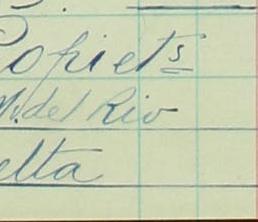 Copiets
M. del Rio
elta